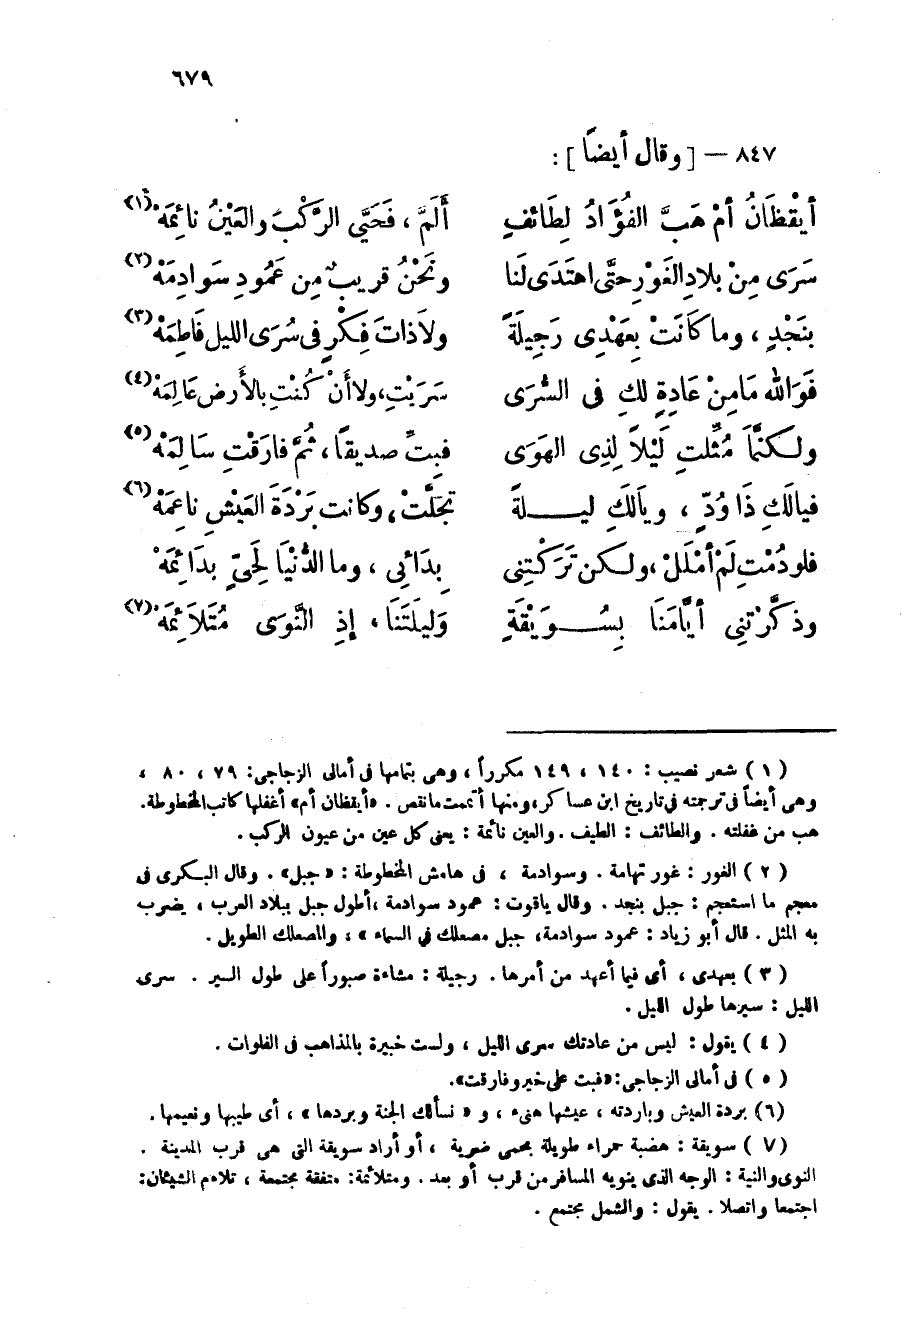 ٦٧٩
٨٤٧ – [ وقال أيضاً ] :
أيَقْظَانُ أمْ هَبَّ الفُؤَادُ لِطَائفٍ أَلَمَّ ، فَحَيَّى الرَّكْبَ والعَيْنُ نائِمَهْ (١)
سَرَى مِنْ بلادِ الغَوْرِ حتَّى اهتَدَى لنَا ونَحْنُ قريبٌ مِن عَمُودِ سَوادِمَهْ (٢)
بنَجْدٍ ، وما كَانَتْ بِعَهْدِى رَجِيلَةً ولاَ ذاتَ فِكْرٍ فى سُرَى الليل فَاطِمَهْ (٣)
فَوَاللّٰه مَا مِنْ عَادةٍ لكِ فى السُّرَى سَرَيْتِ، ولا أنْ كُنْتِ بالأَرضِ عَالِمَهْ (٤)
ولكنَّمَا مُثِّلتِ لَيْلاً لِذِى الهَوَى فبِتِّ صديقًا ، ثُمَّ فارَقْتِ سَالِمَهْ (٥)
فيالَكِ ذَا وُدّ ، ويَالَكِ ليـــلةً تجَلَّتْ ، وكانت بَرْدَةَ العَيْشِ ناعِمَهْ (٦)
فلو دُمْتِ لَمْ أمْلَلْ ، ولكن تَرَكْتِنِى بِدَائِى ، وما الدُّنْيَا لِحَىّ بِدَائِمَهْ
وذكَّرْتِنِى أيَّامَنَا بِسُــوَيْقَةٍ وَليلَتَنَا ، إذِ النَّوَى مُتَلاَئِمَهْ (٧)
( ١ ) شعر نصيب : ١٤٠ ، ١٤٩ مكرراً ، وهى بتمامها فى أمالى الزجاجى : ٧٩ ، ٨٠ ،
وهى أيضاً فى ترجمته فى تاريخ ابن عساكر ، ومنها أتممت ما نقص . «أيقظان أم» أغفلها كاتب المخطوطة .
هب من غفلته . والطائف : الطيف . والعين نائمة : يعنى كل عين من عيون الركب .
( ٢ ) الغور : غور تهامة . وسوادمة ، فى هامش المخطوطة : « جبل » . وقال البكرى فى
معجم ما استعجم : جبل بنجد . وقال ياقوت : عمود سوادمة ، أطول جبل ببلاد العرب ، يضرب
به المثل . قال أبو زياد : عمود سوادمة، جبل مصعلك فى السماء » ، والمصعلك الطويل .
( ٣ ) بعهدى ، أى فيما أعهد من أمرها . رجيلة : مشاءة صبوراً على طول السير . سرى
الليل : سيرها طول الليل .
( ٤ ) يقول : ليس من عادتك سرى الليل ، ولست خبيرة بالمذاهب فى الفلوات .
( ٥ ) فى أمالى الزجاجى : «فبت على خير وفارقت» .
(٦) بردة العيش وباردته ، عيشها هنىء ، و « نسألك الجنة وبردها » ، أى طيبها ونعيمها .
( ٧ ) سويقة : هضبة حمراء طويلة بحمى ضرية ، أو أراد سويقة التى هى قرب المدينة .
النوى والنية : الوجه الذى ينويه المسافر من قرب أو بعد . ومتلائمة : متفقة مجتمعة ، تلاءم الشيئان :
اجتمعا واتصلا . يقول : والشمل مجتمع .